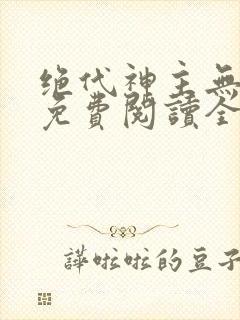 绝代神主無
免費閱讀全
譁啦啦的豆子